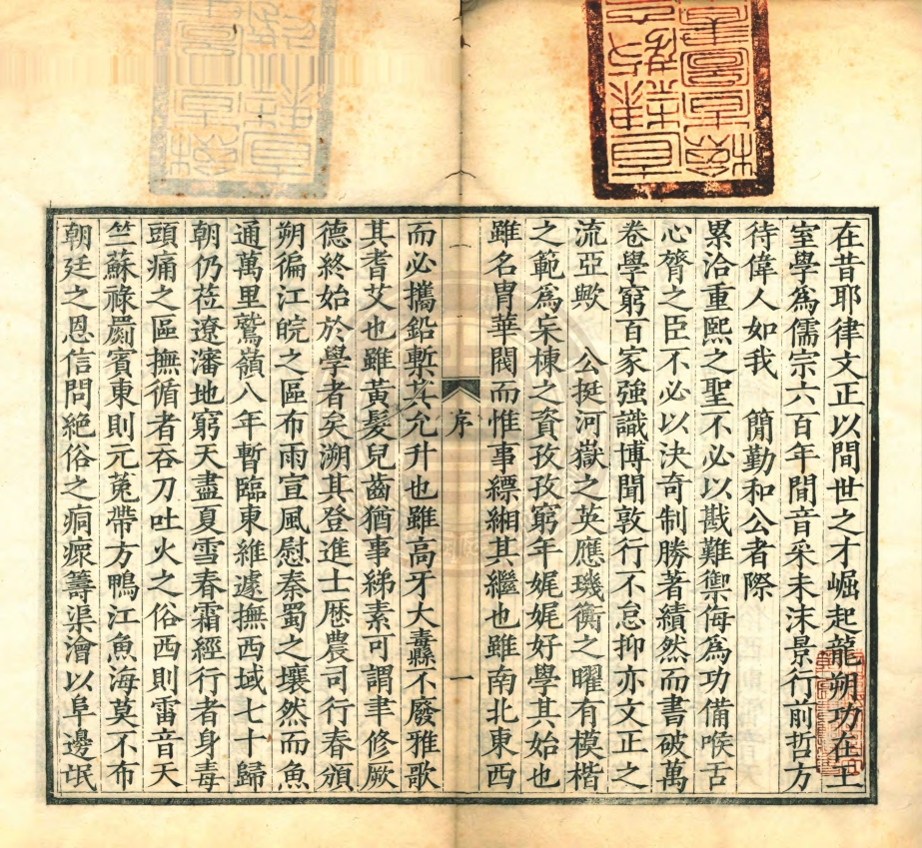 在昔耶律文正以間世之才崛起龍朔功在王
室學爲儒宗六百年間音采未沫景行前哲方
待偉人如我　簡勤和公者際
累洽重熙之聖不必以戡難禦侮爲功備喉舌
心膂之臣不必以決奇制勝著績然而書破萬
卷學窮百家強識博聞敦行不怠抑亦文正之
流亞歟　公挺河嶽之英應璣衡之曜有模楷
之範爲杗棟之資孜孜窮年娓娓好學其始也
雖名冑華閥而惟事縹緗其繼也雖南北東西
序
一
而必攜鉛槧其允升也雖高牙大纛不廢雅歌
其耆艾也雖黃髮兒齒猶事綈素可謂聿修厥
德終始於學者矣溯其登進士歷農司行春頒
朔徧江皖之區布雨宣風慰秦蜀之壤然而魚
通萬里鷲嶺八年暫臨東維遽撫西域七十歸
朝仍莅遼瀋地窮天盡夏雪春霜經行者身毒
頭痛之區撫循者吞刀吐火之俗西則雷音天
竺蘇祿罽賓東則元菟帶方鴨江魚海莫不布
朝廷之恩信問絕俗之痌瘝籌渠澮以阜邊氓